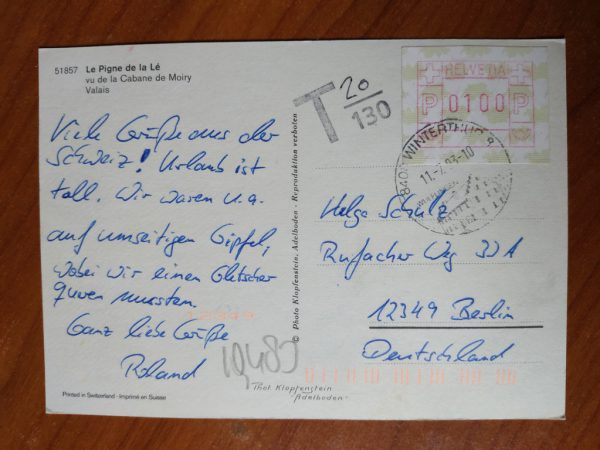 51857 Le Pigne de la Lé
vu de la Cabane de Moiry
Valais
Viele Grüße aus der
Schweiz! Urlaub ist
toll. Wir waren u.a.
auf umseitigen Gipfel,
wobei wir einen Gletscher
queren mussten.
Ganz liebe Grüße
Roland
12349
Printed in Switzerland - Imprimé en Suisse
© Photo Klopfenstein, Adelboden - Reproduktion verboten
T 20
130
HELVETIA
P 0100 P
WINTERTHUR
Helga Schulz
Rufacher Weg 33A
12349 Berlin
Deutschland
Phot. Klopfenstein
Adelboden